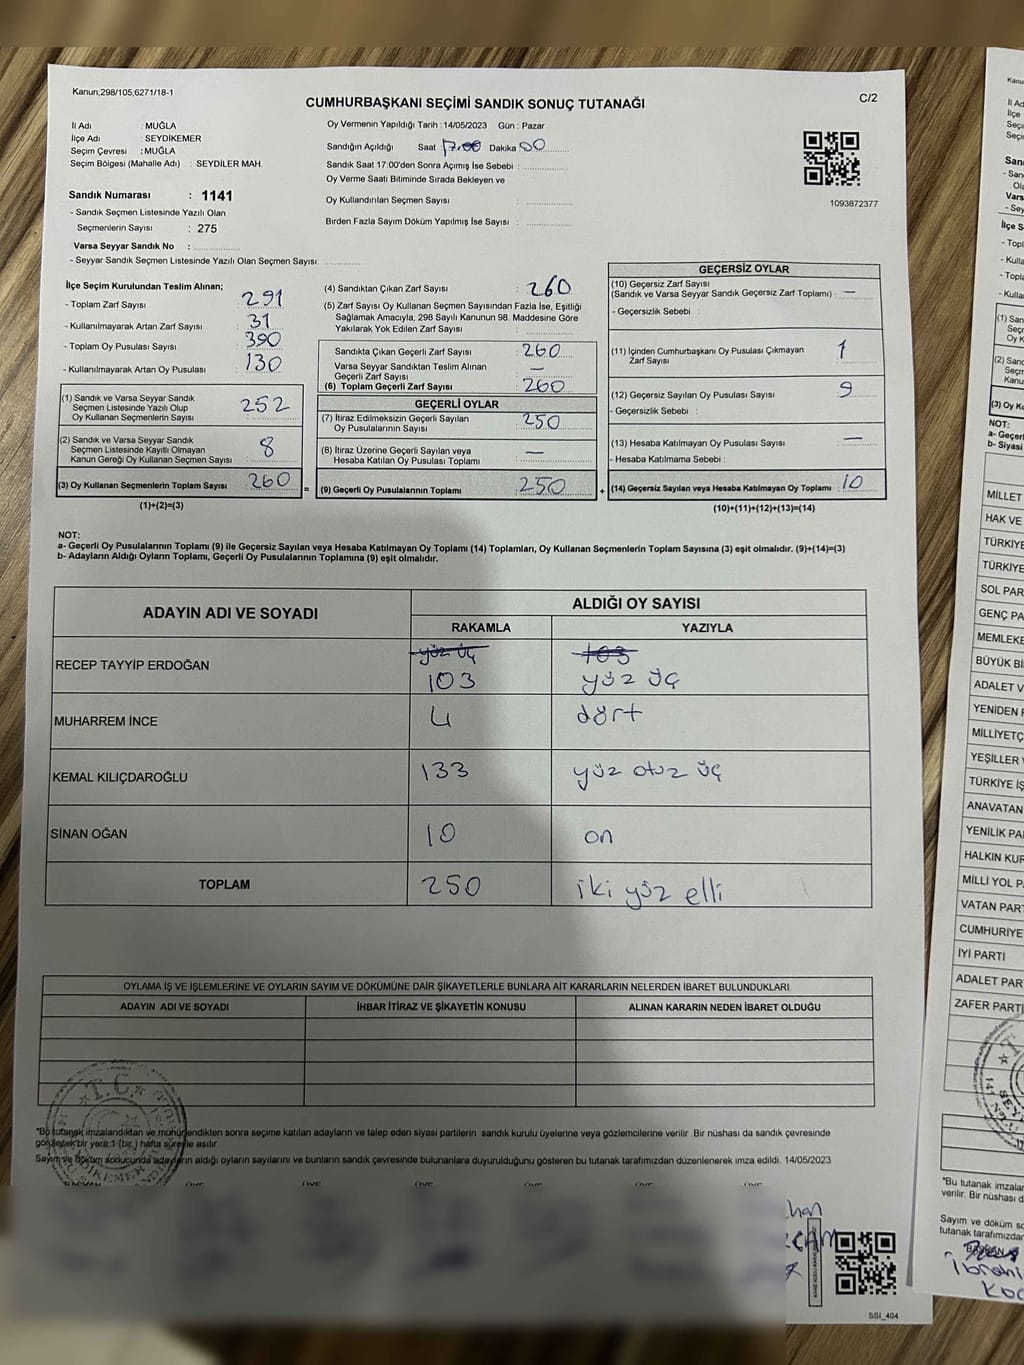 Kanun,298/105;6271/18-1
CUMHURBAŞKANI SEÇİMİ SANDIK SONUÇ TUTANAĞI
C/2
İl Adı : MUĞLA
İlçe Adı : SEYDİKEMER
Seçim Çevresi : MUĞLA
Seçim Bölgesi (Mahalle Adı) : SEYDİLER MAH.
Sandık Numarası : 1141
- Sandık Seçmen Listesinde Yazılı Olan
Seçmenlerin Sayısı : 275
Varsa Seyyar Sandık No :
- Seyyar Sandık Seçmen Listesinde Yazılı Olan Seçmen Sayısı:
Oy Vermenin Yapıldığı Tarih : 14/05/2023 Gün : Pazar
Sandığın Açıldığı Saat 17.00 Dakika 00
Sandık Saat 17:00'den Sonra Açımış İse Sebebi :
Oy Verme Saati Bitiminde Sırada Bekleyen ve
Oy Kullandırılan Seçmen Sayısı :
Birden Fazla Sayım Döküm Yapılmış İse Sayısı :
1093872377
İlçe Seçim Kurulundan Teslim Alınan;
- Toplam Zarf Sayısı : 291
- Kullanılmayarak Artan Zarf Sayısı : 31
- Toplam Oy Pusulası Sayısı : 390
- Kullanılmayarak Artan Oy Pusulası : 130
(1) Sandık ve Varsa Seyyar Sandık
Seçmen Listesinde Yazılı Olup
Oy Kullanan Seçmenlerin Sayısı : 252
(2) Sandık ve Varsa Seyyar Sandık
Seçmen Listesinde Kayıtlı Olmayan
Kanun Gereği Oy Kullanan Seçmen Sayısı : 8
(3) Oy Kullanan Seçmenlerin Toplam Sayısı : 260
(1)+(2)=(3)
(4) Sandıktan Çıkan Zarf Sayısı : 260
(5) Zarf Sayısı Oy Kullanan Seçmen Sayısından Fazla İse, Eşitliği
Sağlamak Amacıyla, 298 Sayılı Kanunun 98. Maddesine Göre
Yakılarak Yok Edilen Zarf Sayısı :
Sandıkta Çıkan Geçerli Zarf Sayısı : 260
Varsa Seyyar Sandıktan Teslim Alınan
Geçerli Zarf Sayısı : —
(6) Toplam Geçerli Zarf Sayısı : 260
GEÇERLİ OYLAR
(7) İtiraz Edilmeksizin Geçerli Sayılan
Oy Pusulalarının Sayısı : 250
(8) İtiraz Üzerine Geçerli Sayılan veya
Hesaba Katılan Oy Pusulası Toplamı : —
= (9) Geçerli Oy Pusulalarının Toplamı : 250
GEÇERSİZ OYLAR
(10) Geçersiz Zarf Sayısı
(Sandık ve Varsa Seyyar Sandık Geçersiz Zarf Toplamı) : —
- Geçersizlik Sebebi :
(11) İçinden Cumhurbaşkanı Oy Pusulası Çıkmayan
Zarf Sayısı : 1
(12) Geçersiz Sayılan Oy Pusulası Sayısı : 9
- Geçersizlik Sebebi :
(13) Hesaba Katılmayan Oy Pusulası Sayısı : —
- Hesaba Katılmama Sebebi :
+ (14) Geçersiz Sayılan veya Hesaba Katılmayan Oy Toplamı : 10
(10)+(11)+(12)+(13)=(14)
NOT:
a- Geçerli Oy Pusulalarının Toplamı (9) ile Geçersiz Sayılan veya Hesaba Katılmayan Oy Toplamı (14) Toplamları, Oy Kullanan Seçmenlerin Toplam Sayısına (3) eşit olmalıdır. (9)+(14)=(3)
b- Adayların Aldığı Oyların Toplamı, Geçerli Oy Pusulalarının Toplamına (9) eşit olmalıdır.
ADAYIN ADI VE SOYADI
ALDIĞI OY SAYISI
RAKAMLA YAZIYLA
yüz üç 103
RECEP TAYYİP ERDOĞAN 103 yüz üç
MUHARREM İNCE 4 dört
KEMAL KILIÇDAROĞLU 133 yüz otuz üç
SİNAN OĞAN 10 on
TOPLAM 250 iki yüz elli
OYLAMA İŞ VE İŞLEMLERİNE VE OYLARIN SAYIM VE DÖKÜMÜNE DAİR ŞİKAYETLERLE BUNLARA AİT KARARLARIN NELERDEN İBARET BULUNDUKLARI
ADAYIN ADI VE SOYADI İHBAR İTİRAZ VE ŞİKAYETİN KONUSU ALINAN KARARIN NEDEN İBARET OLDUĞU
T.C.
"Bu tutanak imzalandıktan ve mühürlendikten sonra seçime katılan adayların ve talep eden siyasi partilerin sandık kurulu üyelerine veya gözlemcilerine verilir .Bir nüshası da sandık çevresinde
görülecek bir yere 1 (bir ) hafta süreyle asılır
Sayım ve döküm sonucunda adayların aldığı oyların sayılarını ve bunların sandık çevresinde bulunanlara duyurulduğunu gösteren bu tutanak tarafımızdan düzenlenerek imza edildi. 14/05/2023
SSI_404
Kanu
İl Ad
İlçe
Seçi
NOT:
a- Geçerl
b- Siyasi
MİLLET
HAK VE
TÜRKİYE
TÜRKİYE
SOL PAR
GENÇ PA
MEMLEKE
BÜYÜK Bİ
ADALET V
YENİDEN
MİLLİYETÇ
YEŞİLLER
TÜRKİYE İŞ
ANAVATAN
YENİLİK PA
HALKIN KUR
MİLLİ YOL P
VATAN PART
CUMHURİYE
İYİ PARTİ
ADALET PAR
ZAFER PARTİ
"Bu tutanak imzala
verilir. Bir nüshası d
Sayım ve döküm so
tutanak tarafımızdar